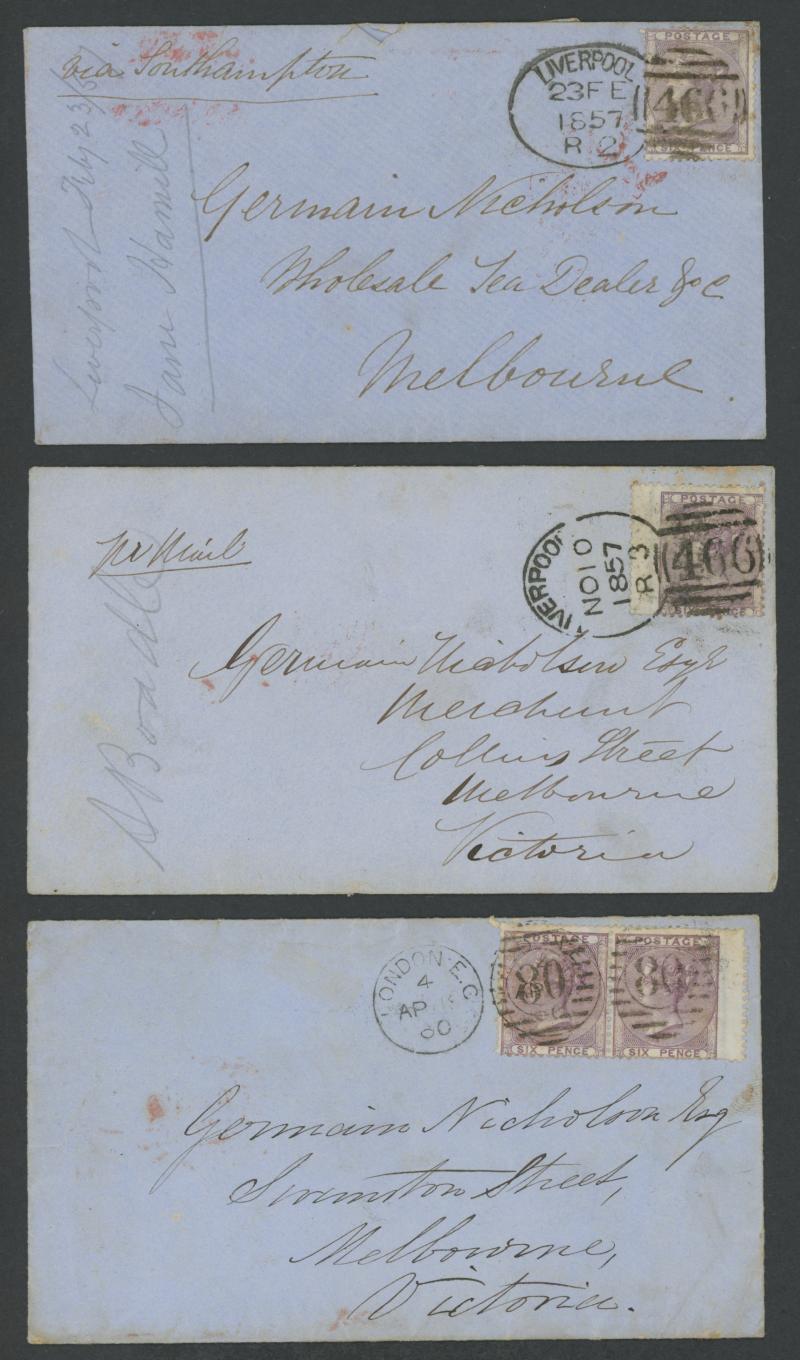 via Southampton
LIVERPOOL
23 FE
1857
R 2
POSTAGE
466
SIX PENCE
Liverpool Feby 23/57
Jane Hamill
Germain Nicholson
Wholesale Tea Dealer &c
Melbourne
pr Mail
LIVERPOOL
NO 10
1857
R 3
POSTAGE
466
SIX PENCE
Germain Nicholson Esqr
Merchant
Collins Street
Melbourne
Victoria
LONDON·E.C
4
AP
60
POSTAGE
80
SIX PENCE
POSTAGE
80
SIX PENCE
Germain Nicholson Esq
Swanston Street,
Melbourne,
Victoria.